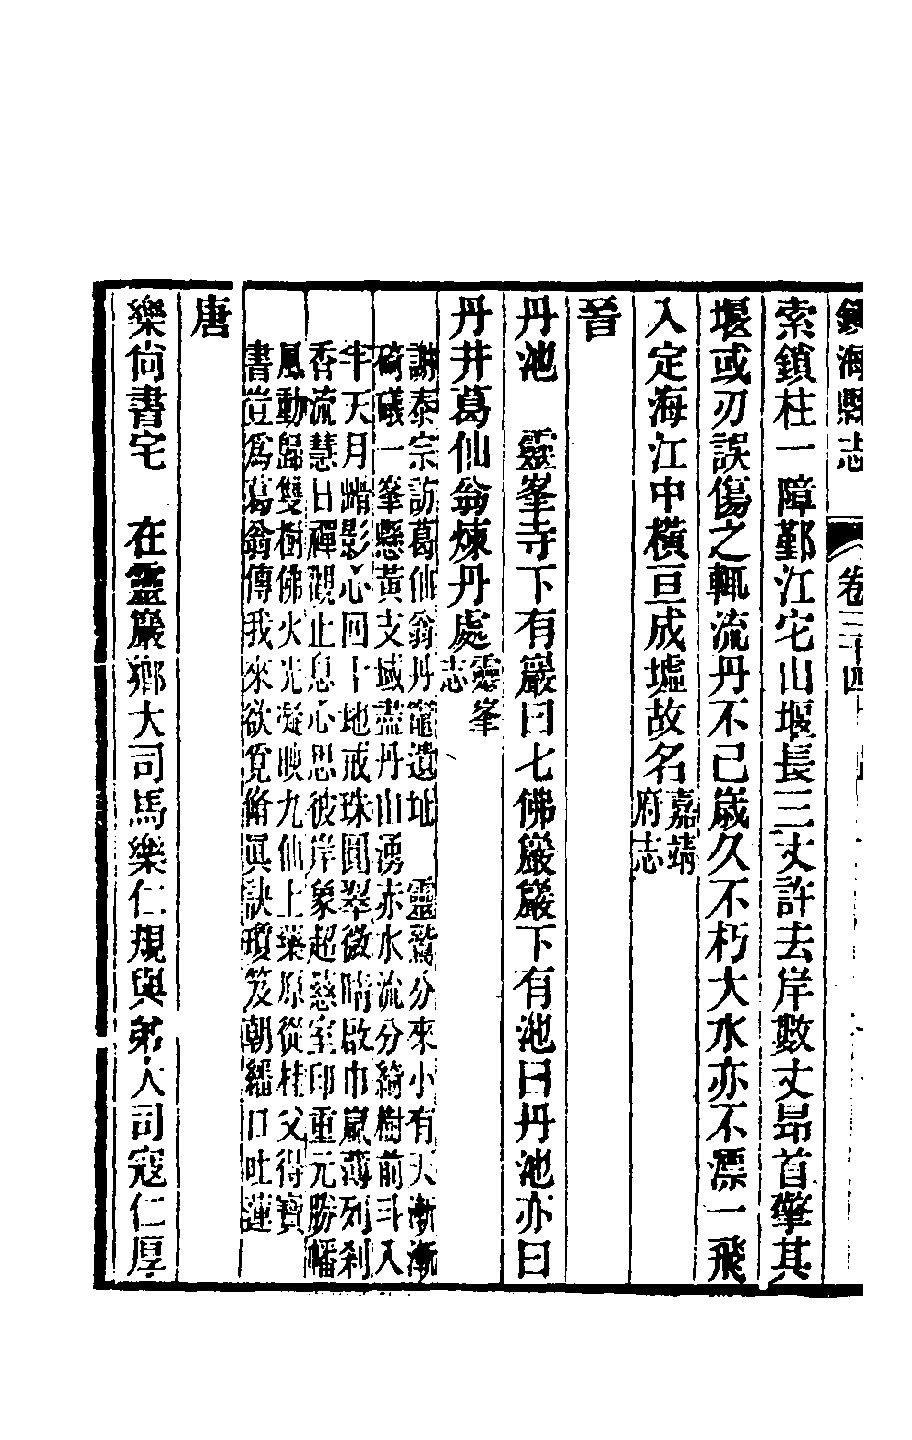 鎮海縣志　卷三十四
索鎖柱一障鄞江宅山堰長三丈許去岸數丈昂首擎其
堰或刃誤傷之輒流丹不已歳久不朽大水亦不漂一飛
入定海江中橫亘成墟故名嘉靖
府志
晉
丹池　靈峯寺下有巖曰七佛巖巖下有池曰丹池亦曰
丹井葛仙翁煉丹處靈峯
志
謝泰宗訪葛仙翁丹竈遺址　靈鷲分來小有天漸漸
碕礒一峯懸黃支域盡丹山湧赤水流分綺樹前斗入
牛天月 影心回十地戒珠圓翠微晴啟巾嵐薄列刹
香流慧日禪觀止息心思彼岸象超慈室印重元勝幡
風動歸雙樹佛火光凝映九仙上藥原從桂父得寶
書豈爲葛翁傳我來欲覓脩眞訣瓊笈朝繙口吐蓮
唐
樂尙書宅　在靈巖鄉大司馬樂仁規與弟大司寇仁厚